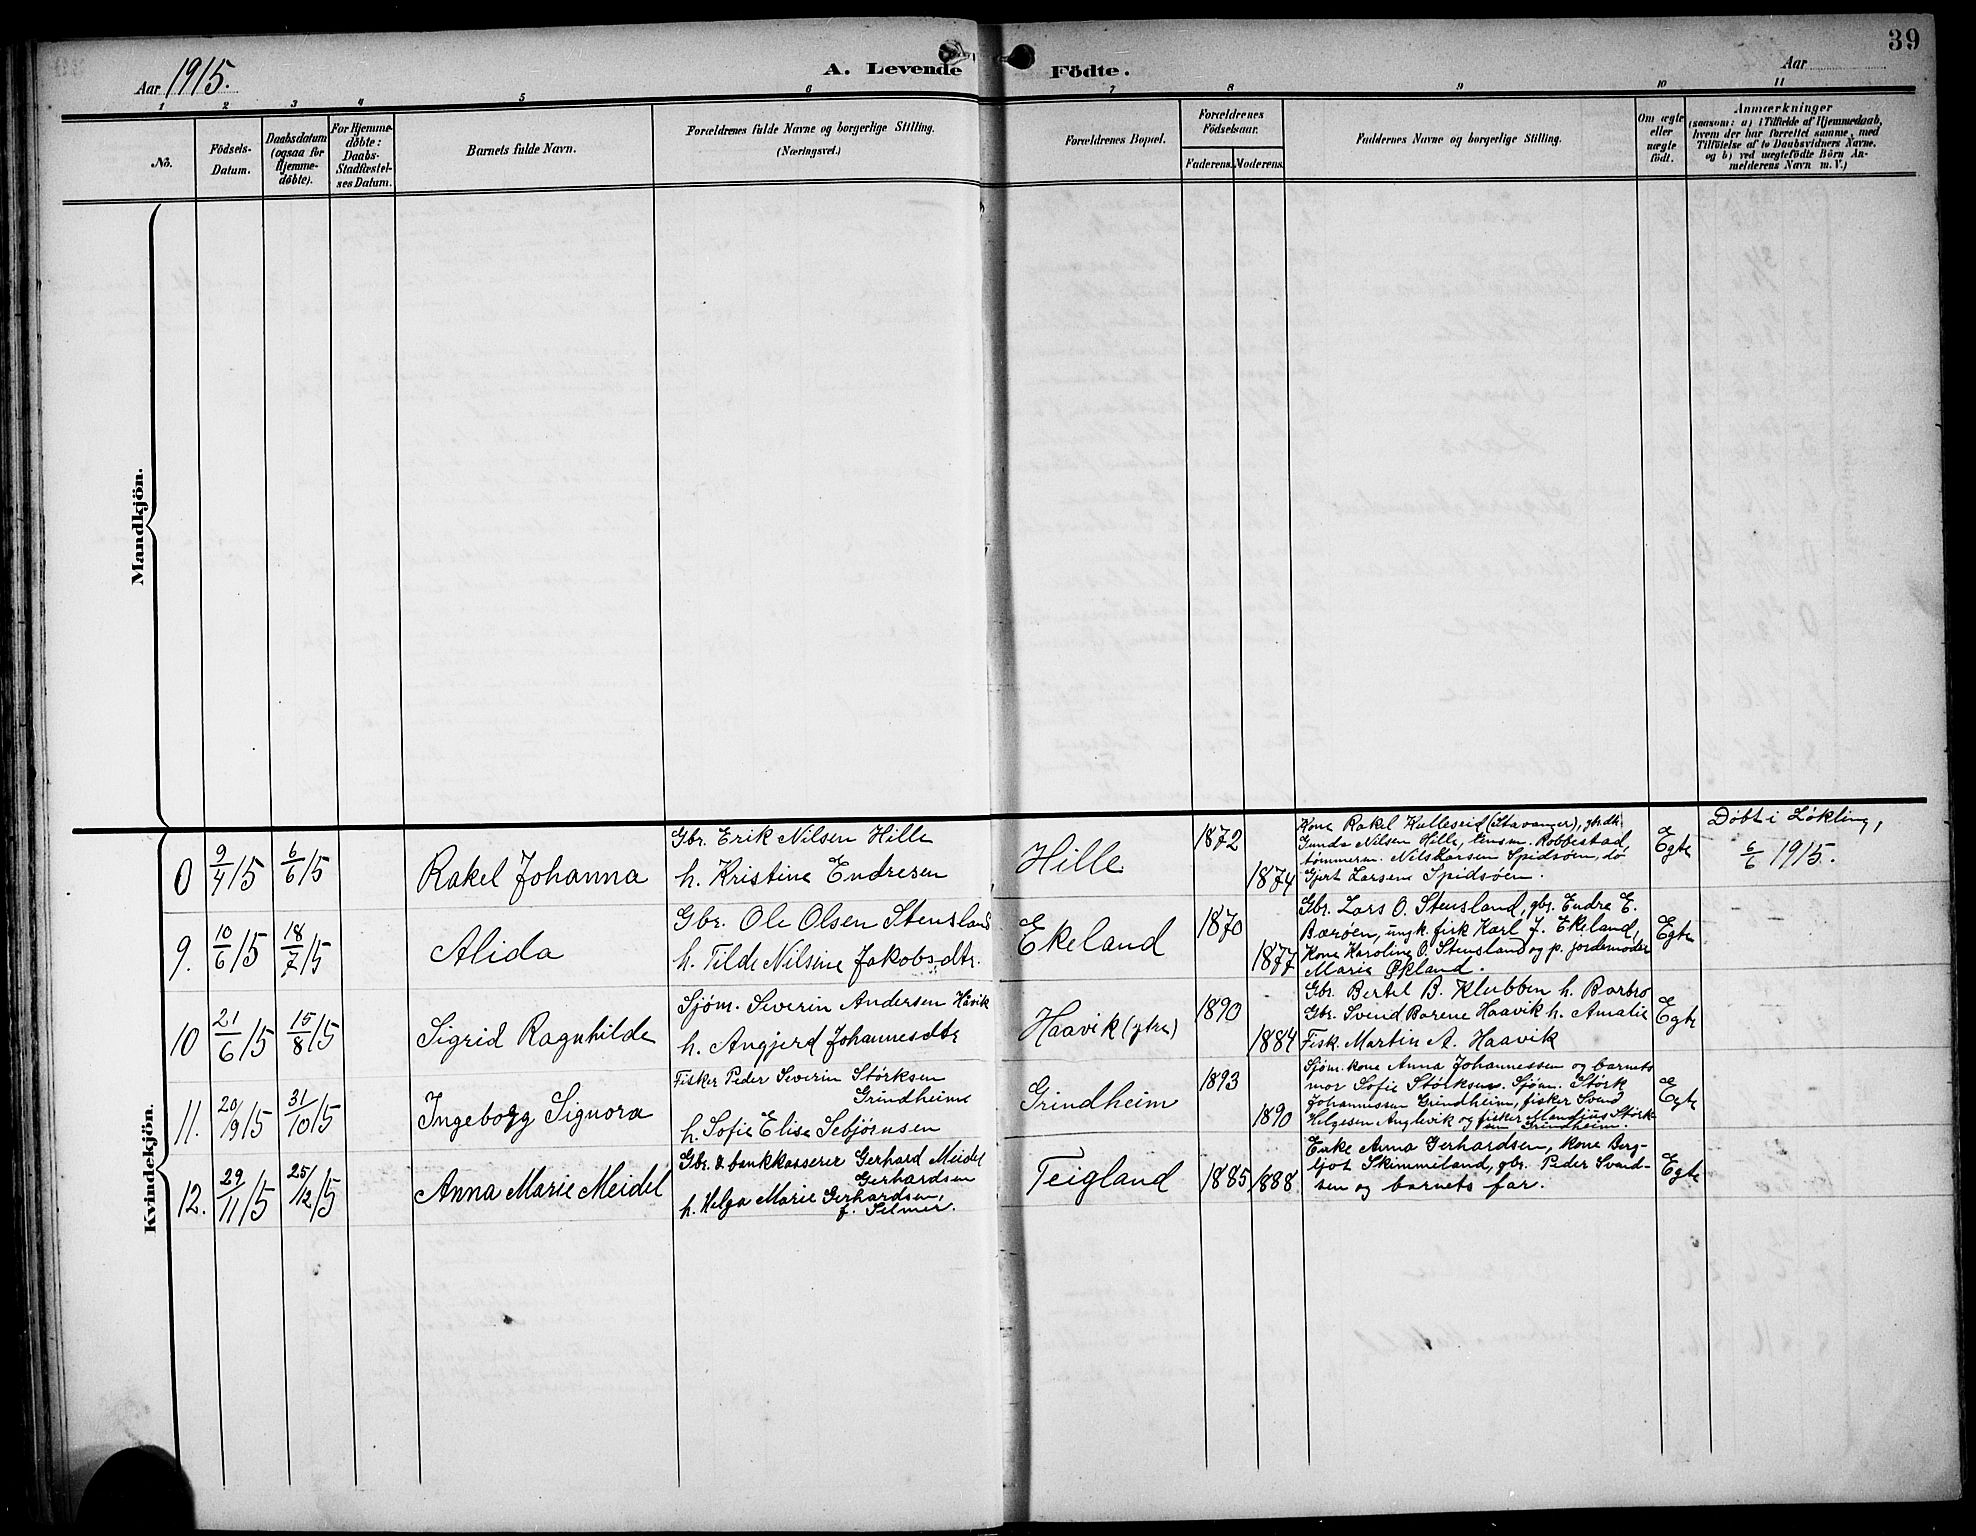 39
Aar 1915.
A. Levende Födte.
Aar
1 2 3 4 5 6 7 8 9 10 11
No.
Födsels-
Datum.
Daabsdatum
(ogsaa for
Hjemme-
döbte).
For Hjemme-
döbte:
Daabs-
Stadfæstel-
ses Datum.
Barnets fulde Navn.
Forældrenes fulde Navne og borgerlige Stilling.
(Næringsvei.)
Forældrenes Bopæl.
Forældrenes
Födselsaar.
Faderens. Moderens.
Faddernes Navne og borgerlige Stilling.
Om ægte
eller
uægte
födt.
Anmærkninger
(saasom: a) i Tilfælde af Hjemmedaab,
hvem der har forrettet samme, med
Tilföielse af to Daabsvidners Navne,
og b) ved uægtefödte Börn An-
melderens Navn m. V.)
Mandkjön.
Kvindekjön.
0 9/4 15 6/6 15 Rakel Johanna
Gbr. Erik Nilsen Hille
h. Kristine Endresen
Hille
1872
1874
Kone Rakel Kalleseid (Stavanger), gbrdtr.
Gunda Nilsen Hille, lensm. Robbestad,
tømmerm. Nils Larsen Spidsøen, do
Gjert Larsene Spidsøen.
Egte
Døbt i Løkling,
6/6 1915.
9. 10/6 15 18/7 15 Alida
Gbr. Ole Olsen Stensland
h. Tilde Nilsine Jakobsdtr.
Ekeland
1870
1877
Gbr. Lars O. Stensland, gbr. Endre E.
Barøen, ungk. fisk Karl J. Ekeland,
Kone Karoline O. Stensland og p. jordemoder
Marie Økland.
Egte
10 21/6 15 15/8 15 Sigrid Ragnhilde
Sjøm. Severin Andersen Håvik
h. Angjerd Johannesdtr
Haavik (ytre)
1890
1884
Gbr. Bertel B. Klubben h. Barbro
Gbr. Svend Borene Haavik h. Amalie
Fisk. Martin A. Haavik
Egte
11. 20/9 15 31/10 15 Ingebogg Signora
Fisker Peder Severin Størksen
Grindheim
h. Sofie Elise Sebjørnsen
Grindheim
1893
1890
Sjøm. kone Anna Johannessen og barnets
mor Sofie Størksen. Sjøm. Størk
Johannessen Grindheim, fisker Svend
Helgesen Anglevik og fisker Mandius Størk-
sen Grindheim.
Egte
12. 29/11 15 25/12 15 Anna Marie Meidel
Gbr. & bankkasserer Gerhard Meidel
Gerhardsen
h. Helga Marie Gerhardsen,
f. Selmer.
Teigland
1885 1888
Enke Anna Gerhardsen, kone Berg-
ljot Skimmeland, gbr. Peder Svend-
sen og barnets far.
Egte